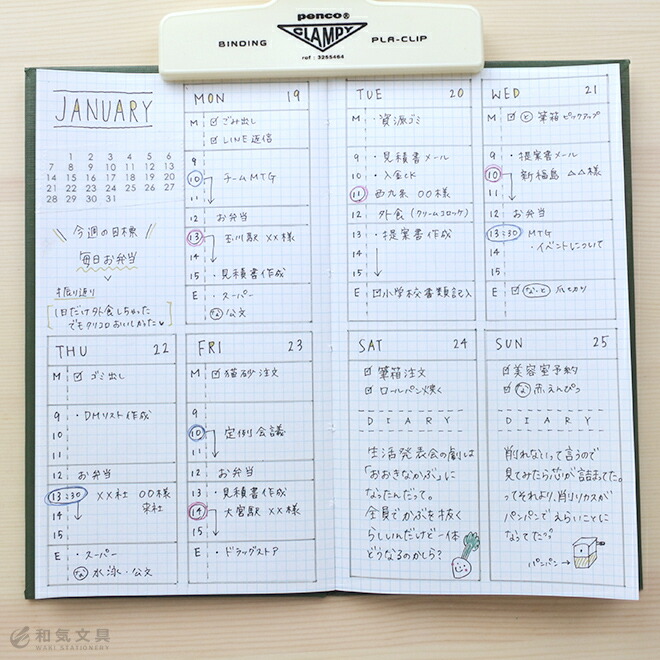 penco®
CLAMPY
BINDING PLA-CLIP
ref : 3255464
JANUARY
1 2 3 4 5 6
7 8 9 10 11 12 13
14 15 16 17 18 19 20
21 22 23 24 25 26 27
28 29 30 31
今週の目標
毎日お弁当
振り返り
1日だけ外食しちゃった
でもクリコロおいしかった
MON 19
M ☑ ごみ出し
☑ LINE返信
9
10 チームMTG
11
12 お弁当
13 玉川駅 ××様
14
15 ・見積書作成
E ・スーパー
な 公文
TUE 20
M ・資源ゴミ
9 ・見積書メール
10 ・入金CK
11 西九条 〇〇様
12 外食 (クリームコロッケ)
13 ・提案書作成
14
15
E ☑ 小学校書類記入
WED 21
M ☑ と 筆箱ピックアップ
9 ・提案書メール
10 新福島 △△様
11
12 お弁当
13:30 MTG
14 ・イベントについて
15
E ☑ な・と 爪セカリ
THU 22
M ☑ ゴミ出し
9 ・DMリスト作成
10
11
12 お弁当
13:30 ××社 〇〇様
14 来社
15
E ・スーパー
な 水泳・公文
FRI 23
M ☑ 猫砂注文
9
10 定例会議
11
12 お弁当
13 ・見積書作成
14 大宮駅 ××様
15
E ・ドラッグストア
SAT 24
☑ 筆箱注文
☑ ロールパン焼く
DIARY
生活発表会の劇は
「おおきなかぶ」に
なったんだって。
全員でかぶを抜く
らしいんだけど一体
どうなるのかしら?
SUN 25
☑ 美容室予約
☑ な 赤えんぴつ
DIARY
削れないって言うので
見てみたら芯が詰まってた。
ってそれより、削りカスが
パンパンでえらいことに
なってた。
パンパン→
和気文具
WAKI STATIONERY